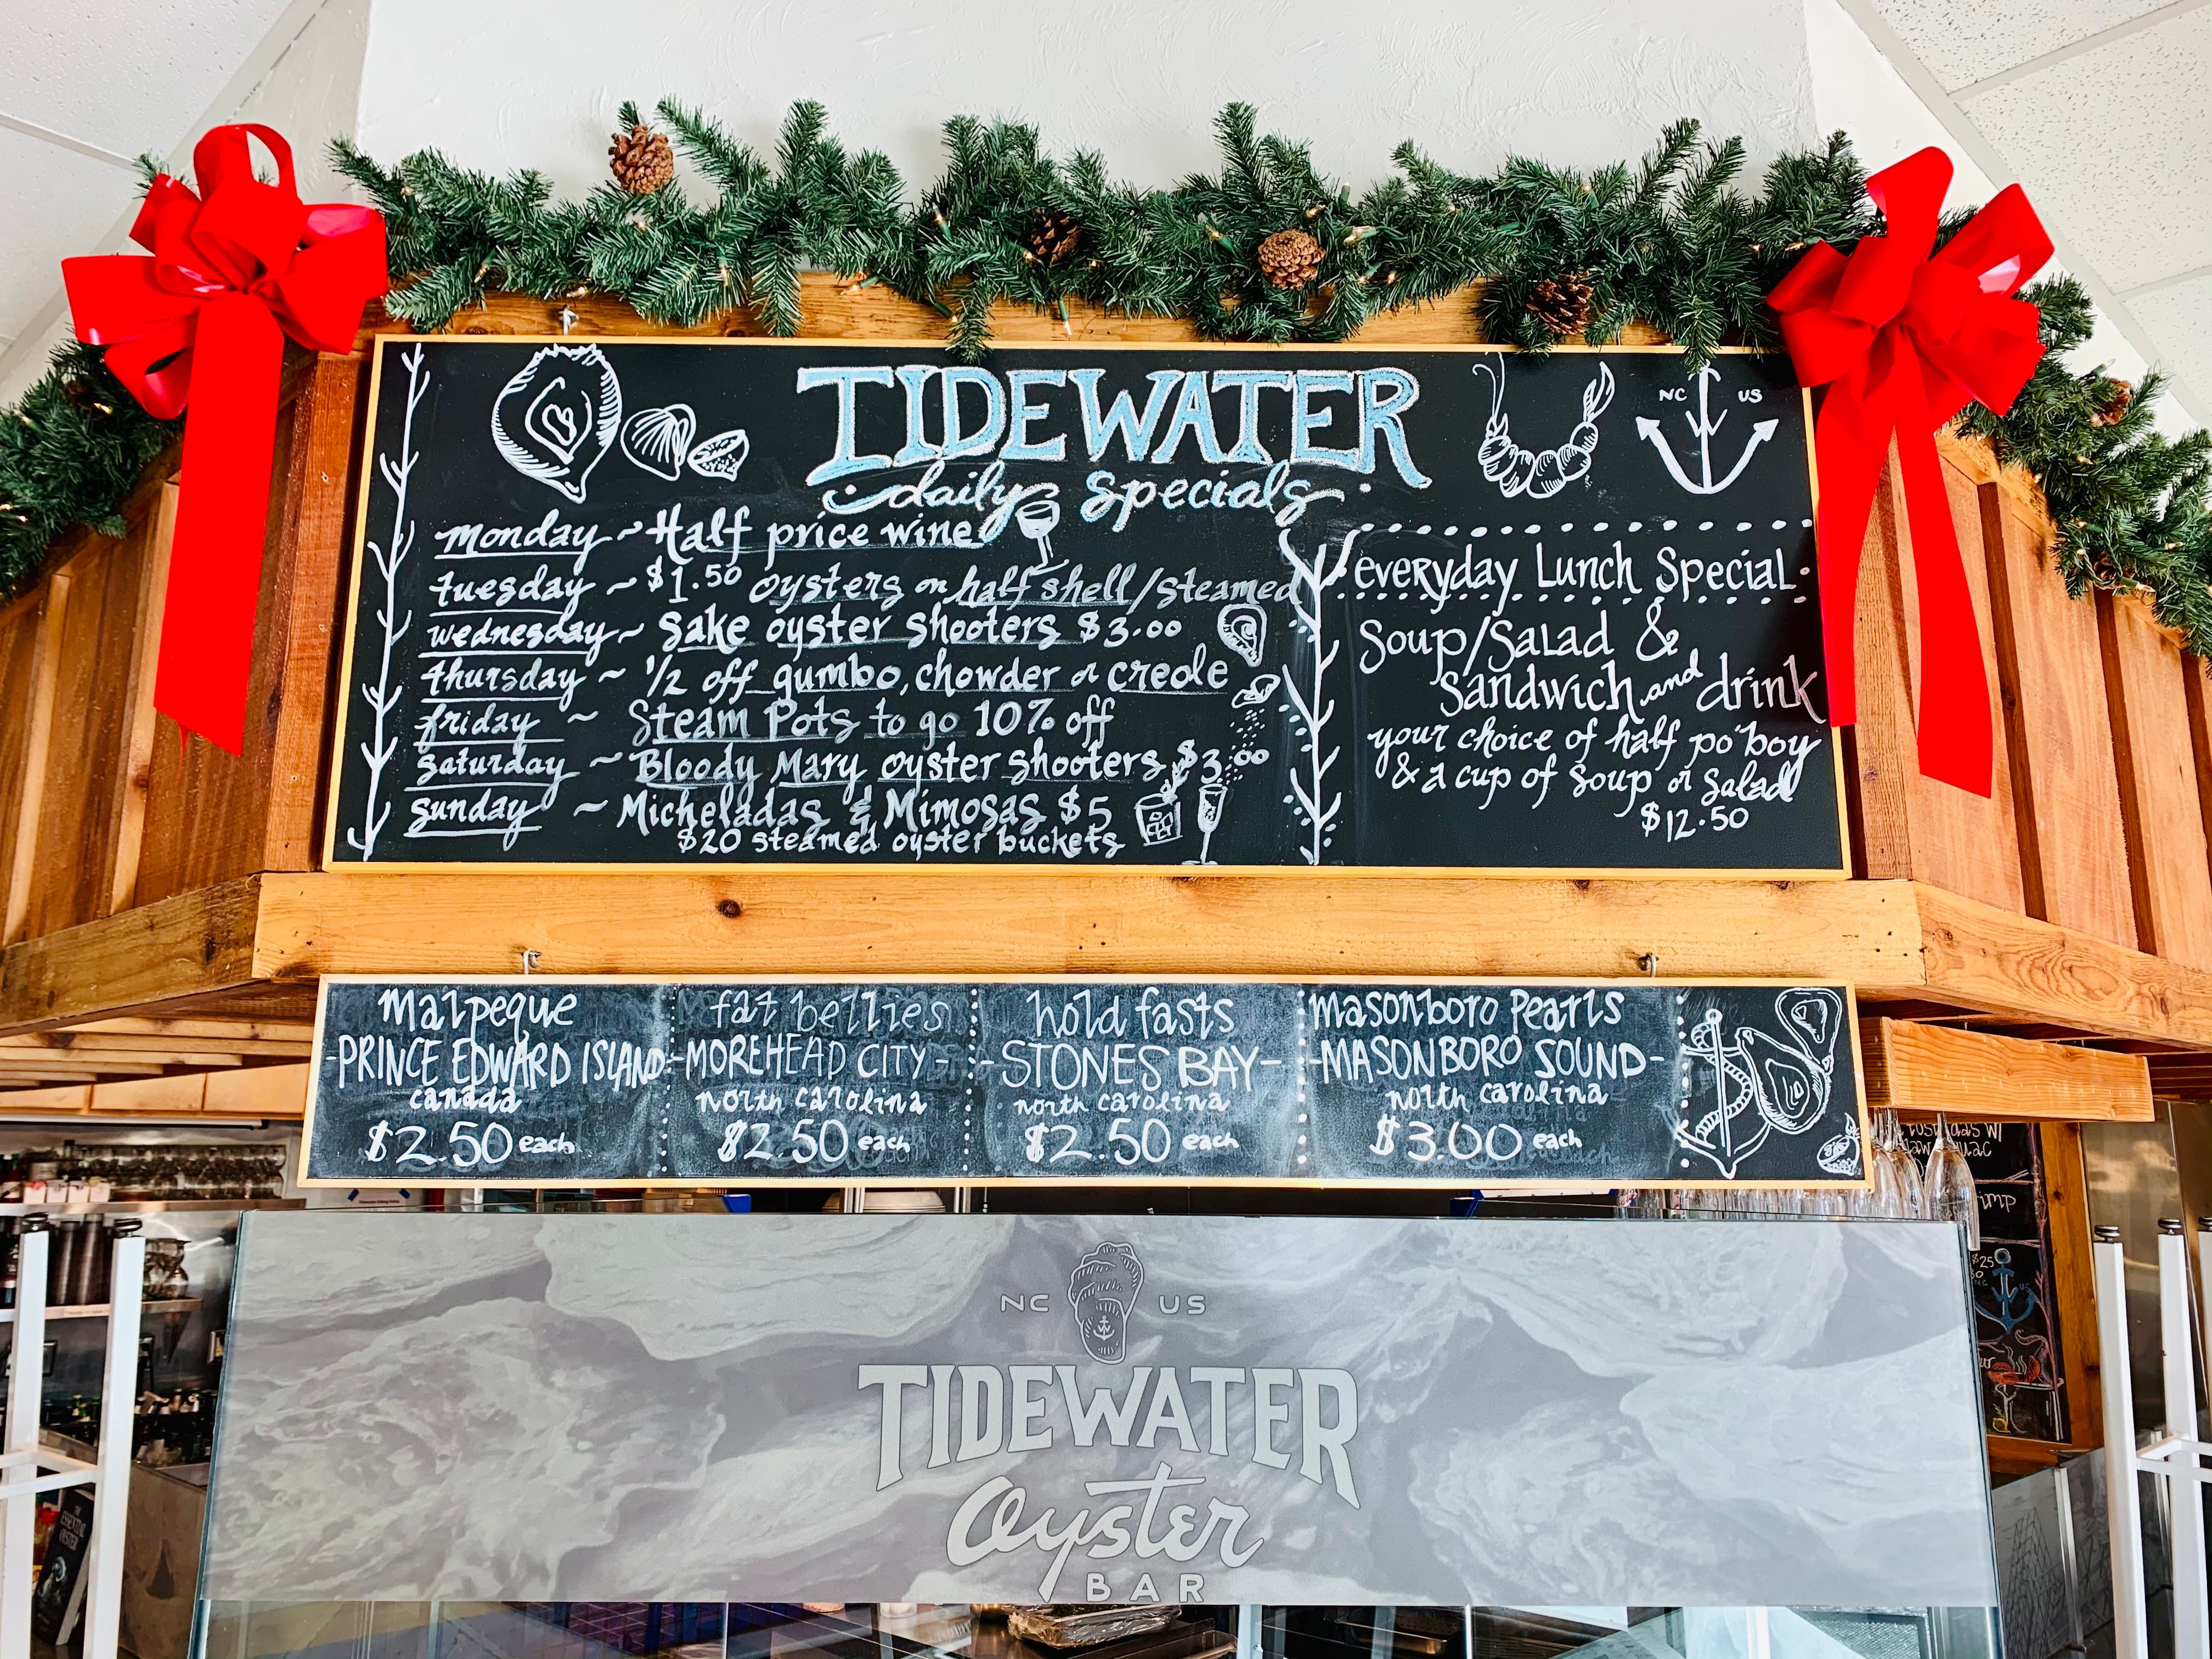 TIDEWATER
daily specials
NC US
monday ~ Half price wine
tuesday ~ $1.50 oysters on half shell/steamed
wednesday ~ Sake oyster shooters $3.00
thursday ~ 1/2 off gumbo, chowder or creole
friday ~ Steam Pots to go 10% off
saturday ~ Bloody Mary oyster shooters $3.00
sunday ~ Micheladas & Mimosas $5
$20 steamed oyster buckets
everyday Lunch Special
Soup/Salad &
Sandwich and drink
your choice of half po'boy
& a cup of soup or salad
$12.50
Malpeque
-PRINCE EDWARD ISLAND-
canada
$2.50 each
fat bellies
-MOREHEAD CITY-
north carolina
$2.50 each
hold fasts
-STONES BAY-
north carolina
$2.50 each
masonboro Pearls
-MASONBORO SOUND-
north carolina
$3.00 each
NC US
TIDEWATER
Oyster
BAR
THE
ESSENTIAL
OYSTER
$25